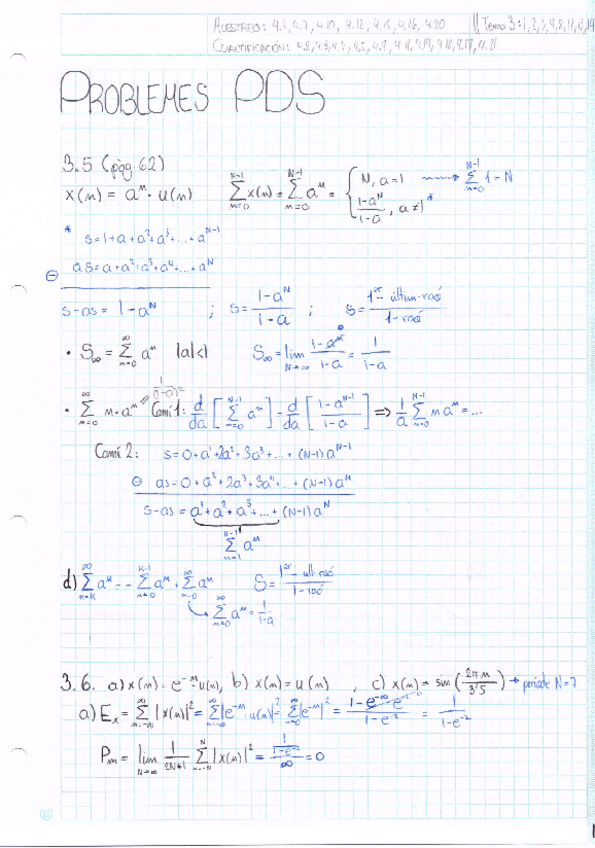 MUESTREO: 4.1, 4.7, 4.10, 4.12, 4.15, 4.16, 4.20 || Tema 3:
CUANTIFICACIÓN:
PROBLEMES PDS
3.5 (pàg. 62)
x(n) = aⁿ · u(n)   Σ_{n=0}^{N-1} x(n) = Σ_{n=0}^{N-1} aⁿ = { N, a=1 → Σ_{n=0}^{N-1} 1 = N
(1-a^N)/(1-a), a≠1 *
* s = 1+a+a²+a³+...+a^{N-1}
⊖ as = a+a²+a³+a⁴+...+a^N
s-as = 1-a^N ; s = (1-a^N)/(1-a) ; s = (1er - últim·raó)/(1-raó)
• S∞ = Σ_{n=0}^{∞} aⁿ |a|<1   S∞ = lim_{N→∞} (1-a^N)/(1-a) = 1/(1-a)
• Σ_{n=0}^{∞} n·aⁿ = 1/(1-a)² Camí 1: d/da [Σ_{n=0}^{N-1} aⁿ] = d/da [(1-a^{N-1})/(1-a)] ⇒ 1/a Σ_{n=0}^{N-1} n aⁿ = ...
Camí 2: s = 0+a¹+2a²+3a³+...+(N-1)a^{N-1}
⊖ as = 0+a²+2a³+3a⁴+...+(N-1)a^N
s-as = a¹+a²+a³+...+(N-1)a^N
Σ_{n=1}^{N-1} aⁿ
d) Σ_{n=K}^{∞} aⁿ = - Σ_{n=0}^{K-1} aⁿ + Σ_{n=0}^{∞} aⁿ   S = (1er - últ·raó)/(1-raó)
Σ_{n=0}^{∞} aⁿ = 1/(1-a)
3.6. a) x(n) = e^{-n}·u(n), b) x(n) = u(n), c) x(n) = sin(2πn/3'5) → període N=7
a) Ex = Σ_{n=-∞}^{∞} |x(n)|² = Σ_{n=-∞}^{∞} |e^{-n}·u(n)|² = Σ_{n=0}^{∞} |e^{-n}|² = (1-e^{-∞}·e^{-2})/(1-e^{-2}) = 1/(1-e^{-2})
Pm = lim_{N→∞} 1/(2N+1) Σ_{n=-N}^{N} |x(n)|² = (1/(1-e^{-2}))/∞ = 0